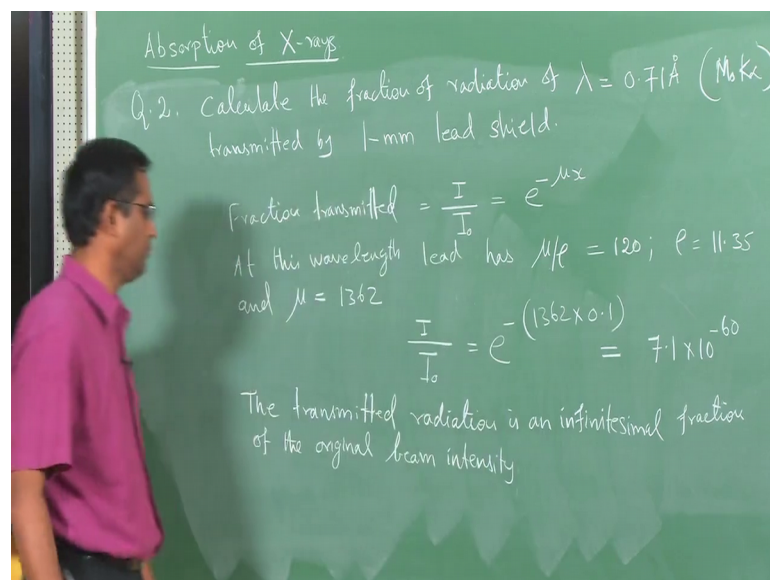 Absorption of X-rays
Q.2. Calculate the fraction of radiation of λ = 0.71Å (MoKα)
transmitted by 1-mm lead shield.
Fraction transmitted = I/I₀ = e^-μx
At this wavelength lead has μ/ρ = 120; ρ = 11.35
and μ = 1362
I/I₀ = e^-(1362×0.1) = 7.1×10^-60
The transmitted radiation is an infinitesimal fraction
of the original beam intensity